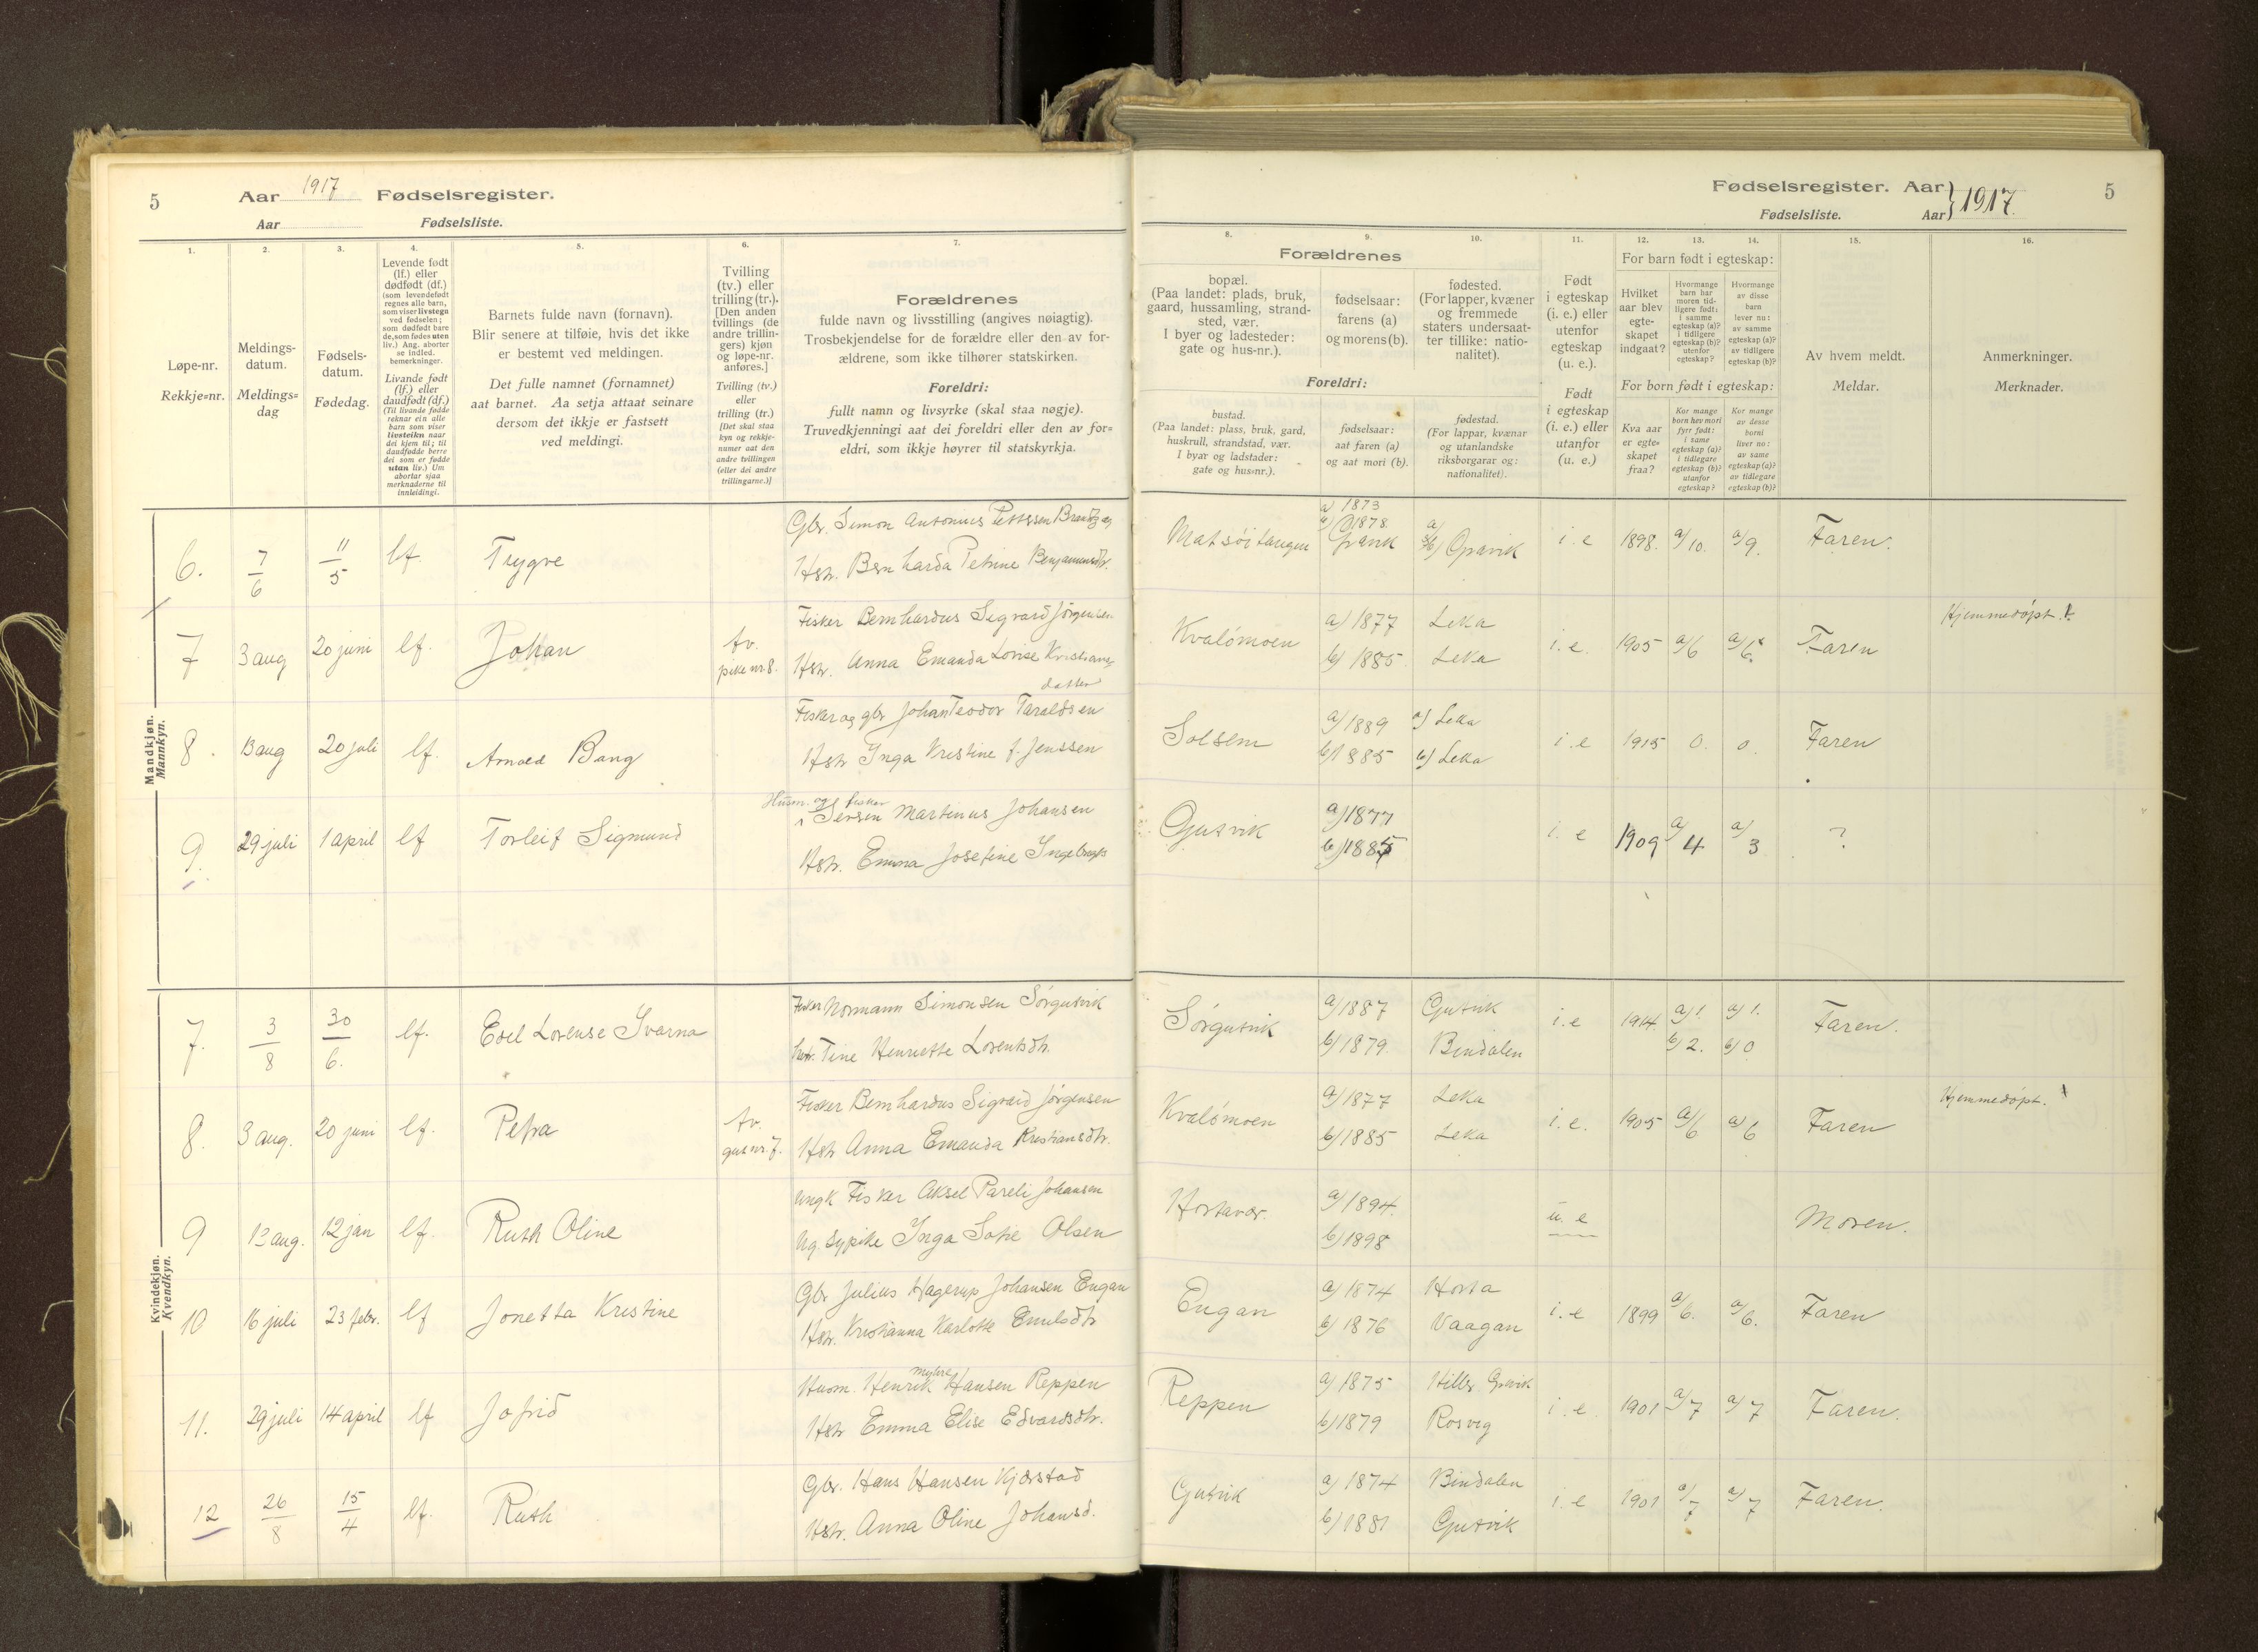 5 Aar 1917 Fødselsregister.
Aar Fødselsliste.
Fødselsregister. Aar } 1917. 5
Fødselsliste. Aar
1. 2. 3. 4. 5. 6. 7. 8. 9. 10. 11. 12. 13. 14. 15. 16.
Løpe-nr.
Rekkje=nr.
Meldings-
datum.
Meldings=
dag
Fødsels-
datum.
Fødedag.
Levende født
(lf.) eller
dødfødt (df.)
(som levendefødt
regnes alle barn,
som viser livstegn
ved fødselen;
som dødfødt bare
de, som fødes uten
liv.) Ang. aborter
se indled.
bemerkninger.
Livande født
(lf.) eller
daudfødt (df.)
(Til livande fødde
reknar ein alle
barn som viser
livsteikn naar
dei kjem til; til
daudfødde berre
dei som er fødde
utan liv.) Um
abortar sjaa
merknaderne til
innleidingi.
Barnets fulde navn (fornavn).
Blir senere at tilføie, hvis det ikke
er bestemt ved meldingen.
Det fulle namnet (fornamnet)
aat barnet. Aa setja attaat seinare
dersom det ikkje er fastsett
ved meldingi.
Tvilling
(tv.) eller
trilling (tr.).
[Den anden
tvillings (de
andre trillin-
gers) kjøn
og løpe-nr.
anføres.]
Tvilling (tv.)
eller
trilling (tr.)
[Det skal staa
kyn og rekkje-
numer aat den
andre tvillingen
(eller dei andre
trillingarne.)]
Forældrenes
fulde navn og livsstilling (angives nøiagtig).
Trosbekjendelse for de forældre eller den av for-
ældrene, som ikke tilhører statskirken.
Foreldri:
fullt namn og livsyrke (skal staa nøgje).
Truvedkjenningi aat dei foreldri eller den av for=
eldri, som ikkje høyrer til statskyrkja.
Forældrenes
bopæl.
(Paa landet: plads, bruk,
gaard, hussamling, strand-
sted, vær.
I byer og ladesteder:
gate og hus-nr.).
fødselsaar:
farens (a)
og morens (b).
fødested.
(For lapper, kvæner
og fremmede
staters undersaat-
ter tillike: natio-
nalitet).
Foreldri:
bustad.
(Paa landet: plass, bruk, gard,
huskrull, strandstad, vær.
I byar og ladstader:
gate og hus=nr.).
fødselsaar:
aat faren (a)
og aat mori (b).
fødestad.
(For lappar, kvænar
og utanlandske
riksborgarar og:
nationalitet).
Født
i egteskap
(i. e.) eller
utenfor
egteskap
(u. e.).
Født
i egteskap
(i. e.) eller
utanfor
(u. e.)
For barn født i egteskap:
Hvilket
aar blev
egte-
skapet
indgaat?
Hvormange
barn har
moren tid-
ligere født:
i samme
egteskap (a)?
i tidligere
egteskap (b)?
utenfor
egteskap?
Hvormange
av disse
barn
lever nu:
av samme
egteskap (a)?
av tidligere
egteskap (b)?
For born født i egteskap:
Kva aar
er egte=
skapet
fraa?
Kor mange
born hev mori
fyrr født:
i same
egteskap (a)?
i tidlegare
egteskap (b)?
utanfor
egteskap?
Kor mange
av desse
borni
liver no:
av same
egteskap (a)?
av tidlegare
egteskap (b)?
Av hvem meldt.
Meldar.
Anmerkninger.
Merknader.
Mandkjøn.
Mannkyn.
6. 7/6 11/5 lf. Trygve Gbr. Simon Antonius Pettersen
Hstr. Bernharda Petrine Benjaminsdtr.
a) 1873 b) 1878 i. e 1898. a/10. a/9. Faren.
7 3 aug 20 juni lf. Johan tv. pike nr 8. Fisker Bernhardus Sigvard Jörgensen
Hstr. Anna Emanda Lovise Kristians-
datter
Kvalömoen a) 1877 Leka b) 1885 Leka i. e. 1905 a/6 a/6 Faren Hjemmedöpt.
8. 13 aug 20 juli lf. Arnold Bang Fisker og gbr Johan Teodor Taraldsen
Hstr Inga Kristine f. Jenssen
Solsem a) 1889 a) Leka b) 1885 b) Leka i. e 1915 0. 0. Faren
9. 29 juli 1 april lf Torleif Sigmund Husm. og fisker
Jensen Martinus Johansen
Hstr. Emma Josefine
Gutvik a) 1877 b) 1885 i. e 1909 a/4 a/3 ?
Kvindekjøn.
Kvendkyn.
7. 3/8 30/6. lf. Edel Lorense Svarna Fisker Normann Simonsen Sörgutvik
hstr. Tine Henriette Lorentsdtr.
Sörgutvik a) 1887 Gutvik b) 1879. Bindalen i. e 1914. a) 1. b) 2. a) 1. b) 0 Faren.
8. 3 aug. 20 juni lf. Petra tv. gut nr. 7. Fisker Bernhardus Sigvard Jörgensen
Hstr Anna Emanda Kristiansdtr.
Kvalömoen a) 1877 Leka b) 1885 Leka i. e. 1905 a/6 a/6 Faren Hjemmedöpt.
9 13 aug. 12 jan lf. Ruth Oline Ungk Fisker Aksel Pareli Johansen
Ug. Sypike Inga Sofie Olsen
Hortavær. a) 1894. b) 1898 u. e Moren.
10 16 juli 23 febr. lf Jonetta Kristine Gbr Julius Hagerup Johansen Engan
Hstr. Kristianna Karlotte Emilsdtr
Engan a) 1874 Horta b) 1876 Vaagan i. e 1899 a/6. a/6. Faren
11. 29 juli 14 april lf Jofrid Husm. Henrik Hansen Reppen
Hstr Emma Elise Edvardsdtr.
Reppen a) 1875 b) 1879 i. e 1901 a/7 a/7 Faren.
12 26/8 15/4 lf. Ruth Gbr. Hans Hansen Kjærstad
Hstr. Anna Oline Johansd.
Gutvik a) 1874 Bindalen b) 1881 Gutvik i. e 1901 a/7 a/7 Faren.